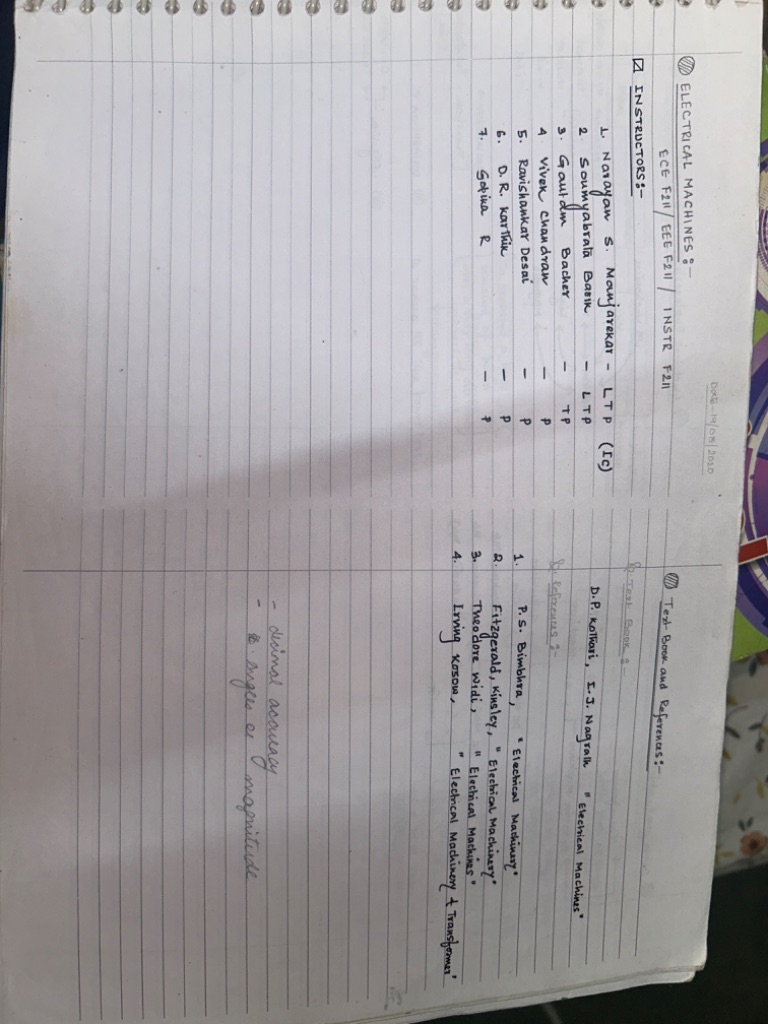 DATE-19/08/2020
ELECTRICAL MACHINES:-
ECE F211/ EEE F211 / INSTR F211
INSTRUCTORS:-
1. Narayan S. Manjarekar - LTP (IC)
2. Soumyabrata Barik - LTP
3. Gautam Bacher - TP
4 Vivek Chandran - P
5. Ravishankar Desai - P
6. D.R. Karthik - P
7. R - P
Text Book and References:-
Text Book :-
D.P. Kothari, I.J. Nagrath "Electrical Machines"
References :-
1. P.S. Bimbhra, "Electrical Machinery"
2. Fitzgerald, Kinsley, "Electrical Machinery"
3. Theodore Widi, "Electrical Machines"
4. Irving Kosow, "Electrical Machinery & Transformer"
- decimal accuracy
- angles or magnitude